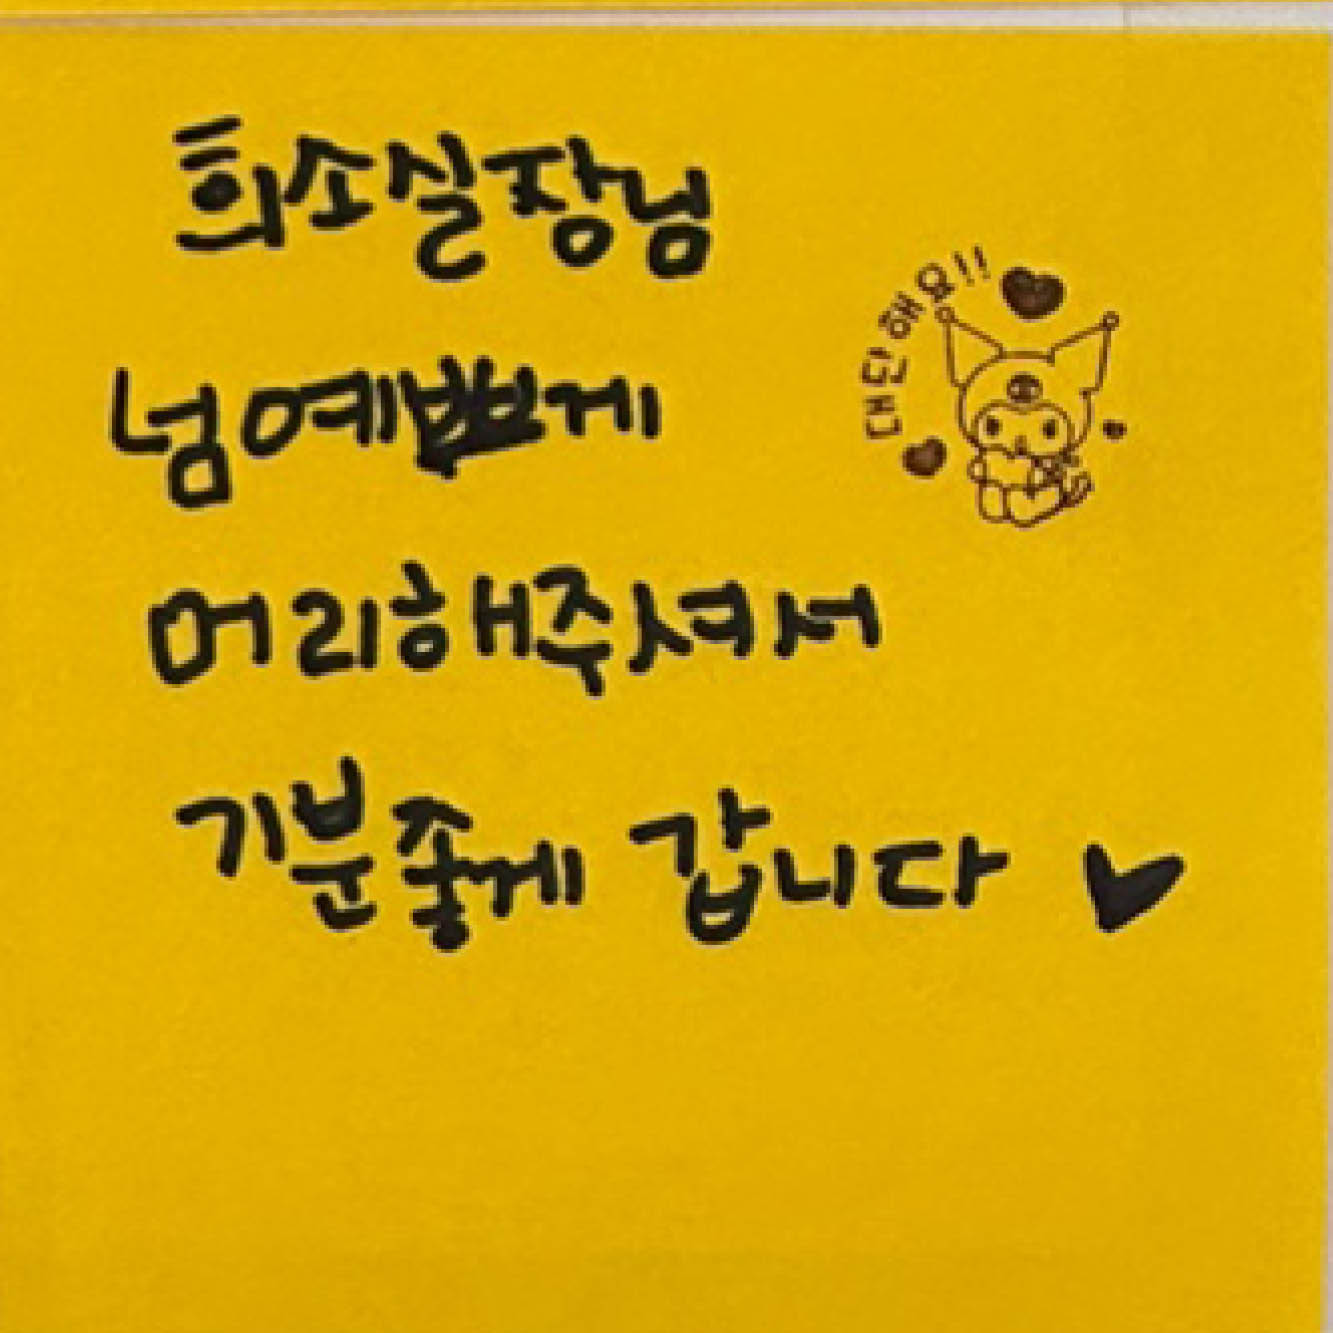 희소실장넘
넘예쁘게
머리해주셔서
기분좋게 갑니다 ♥
대단해요!!